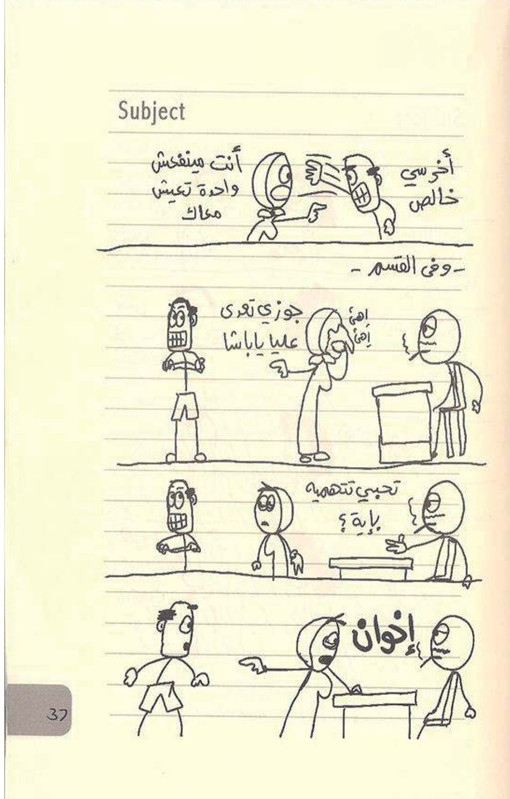 Subject
أخرسي
خالص
أنت مينفعش
واحدة تعيش
معاك
- وفى القسم -
إهئ
إهئ
جوزي تعدى
عليا ياباشا
تحبي تتهميه
بإية؟
إخوان
37